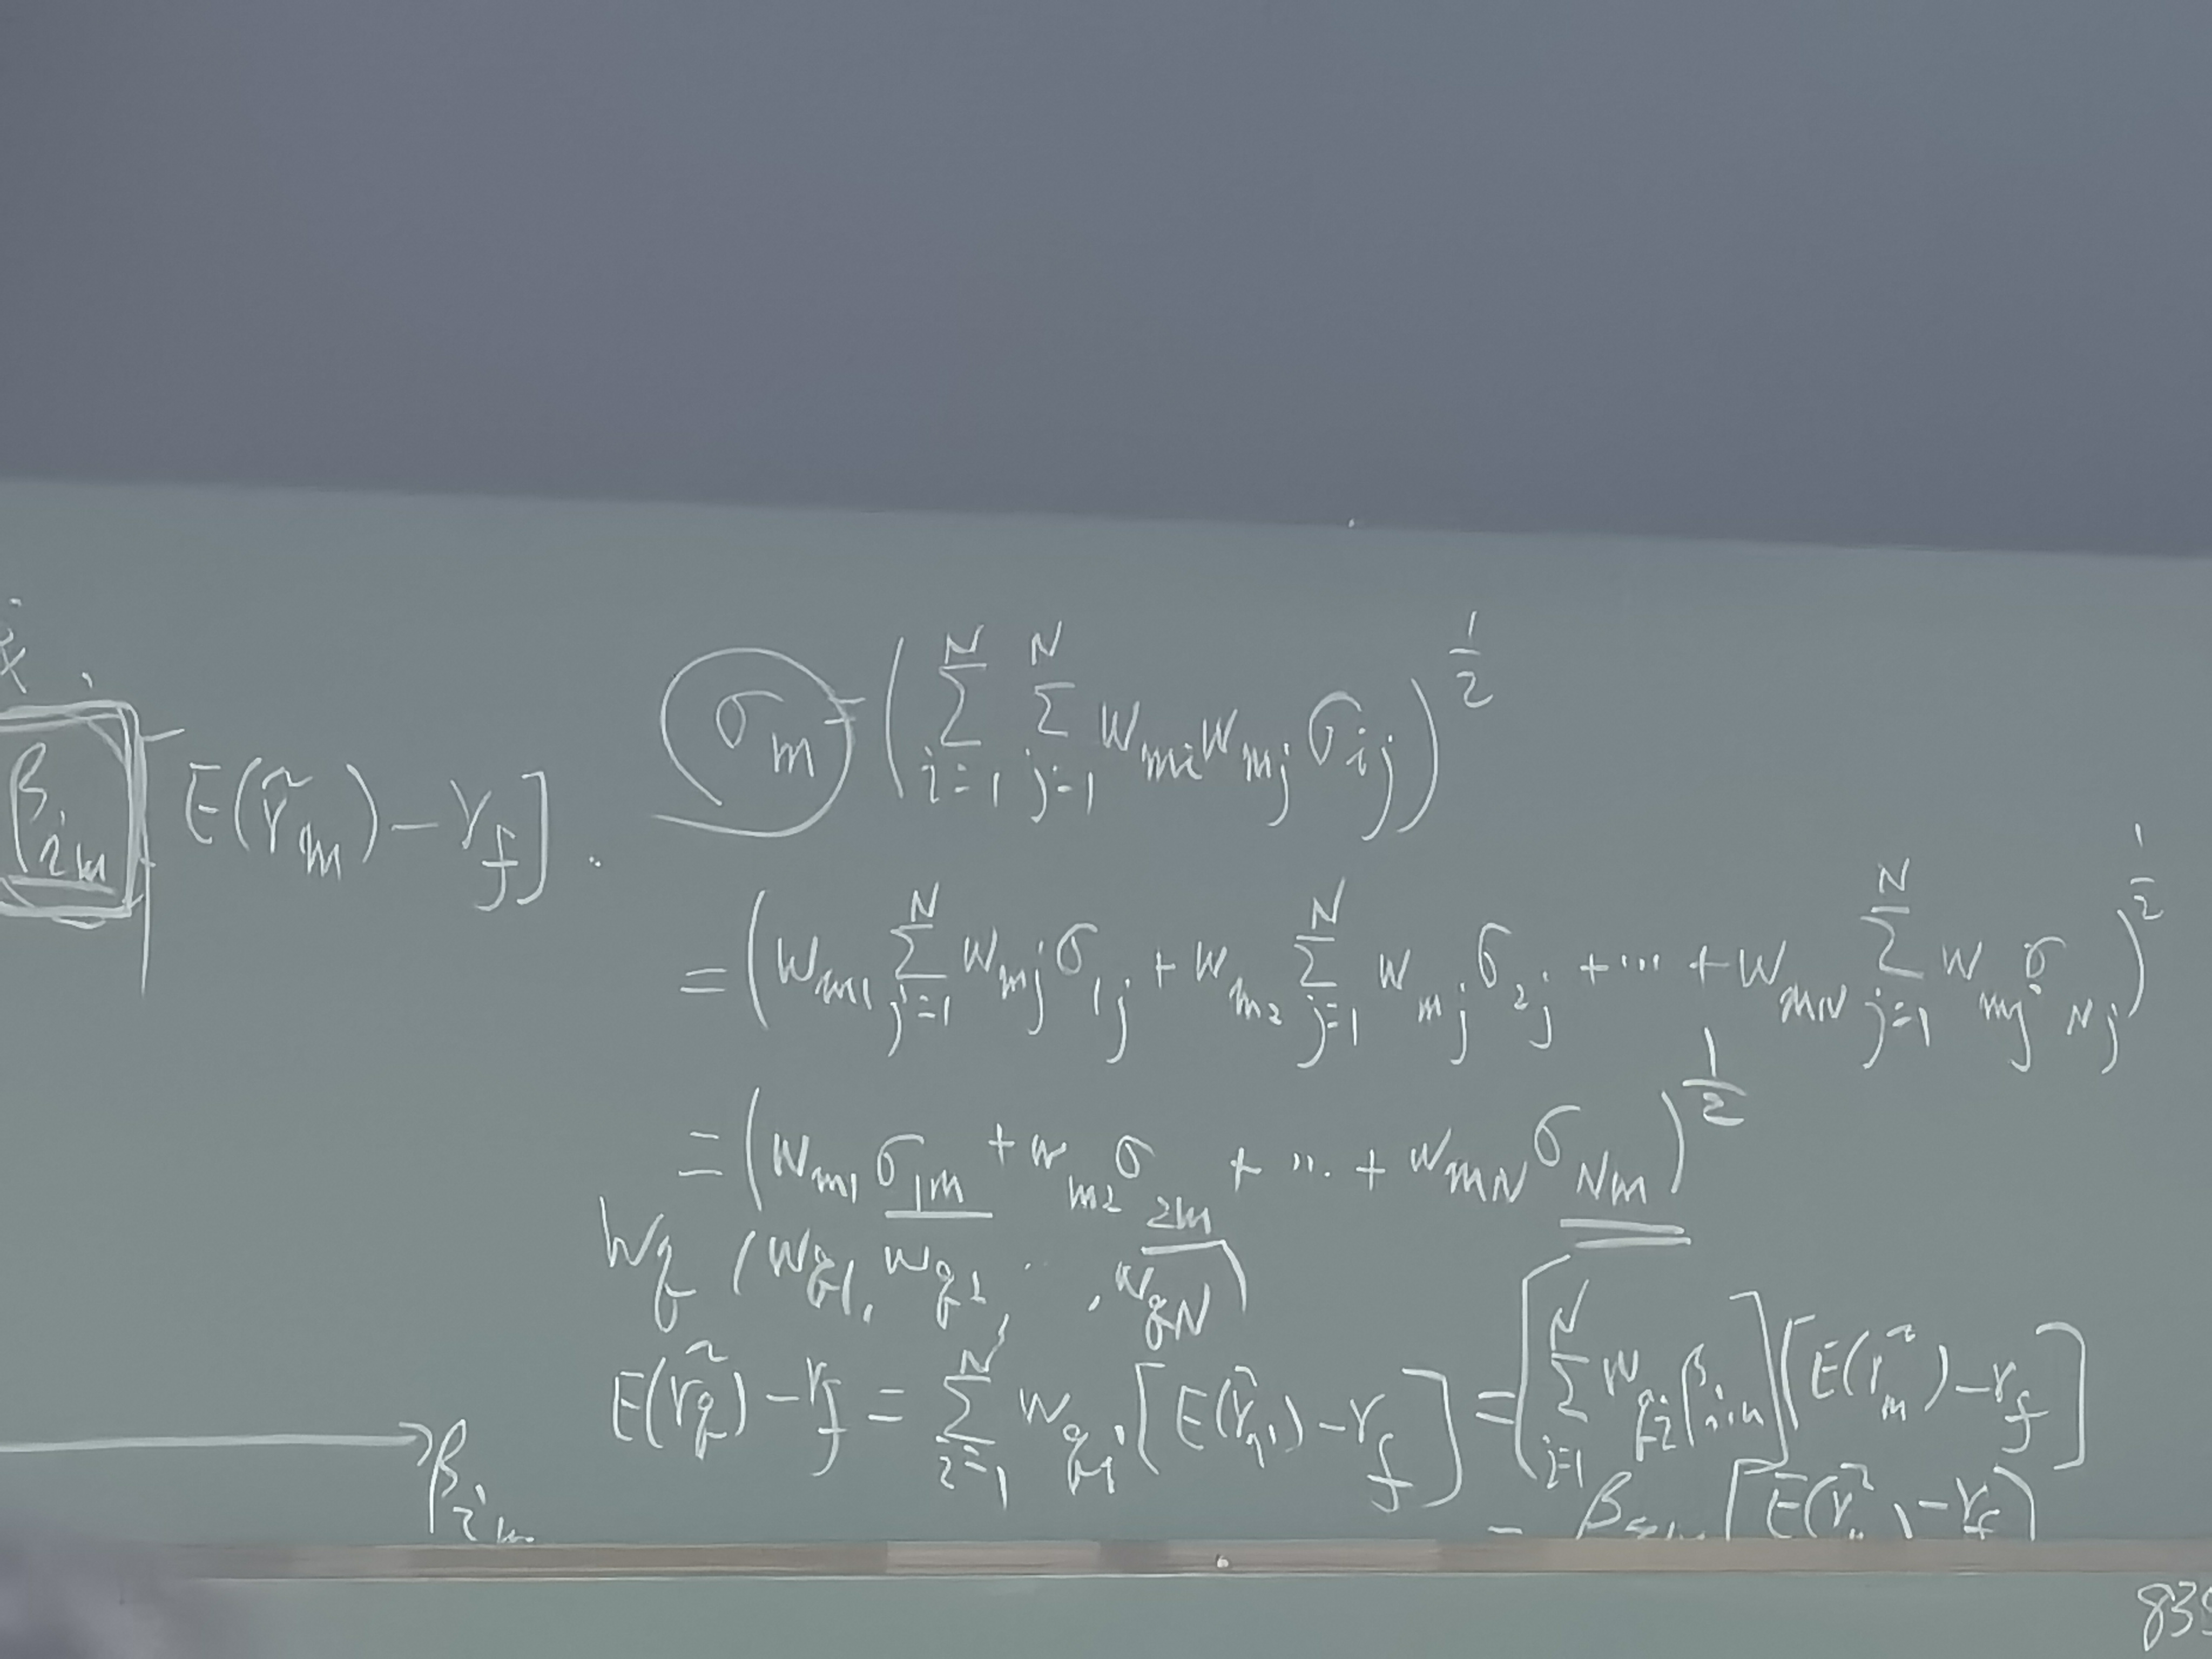 β_{im} [E(r̃_m) − r_f].
σ_m = (∑_{i=1}^{N} ∑_{j=1}^{N} w_{mi} w_{mj} σ_{ij})^{1/2}
= (w_{m1} ∑_{j=1}^{N} w_{mj} σ_{1j} + w_{m2} ∑_{j=1}^{N} w_{mj} σ_{2j} + ... + w_{mN} ∑_{j=1}^{N} w_{mj} σ_{Nj})^{1/2}
= (w_{m1} σ_{1m} + w_{m2} σ_{2m} + ... + w_{mN} σ_{Nm})^{1/2}
W_q (w_{q1}, w_{q2}, ..., w_{qN})
E(r̃_q) − r_f = ∑_{i=1}^{N} w_{qi} [E(r̃_i) − r_f] = [∑_{i=1}^{N} w_{qi} β_{im}] [E(r̃_m) − r_f]
β_{im}